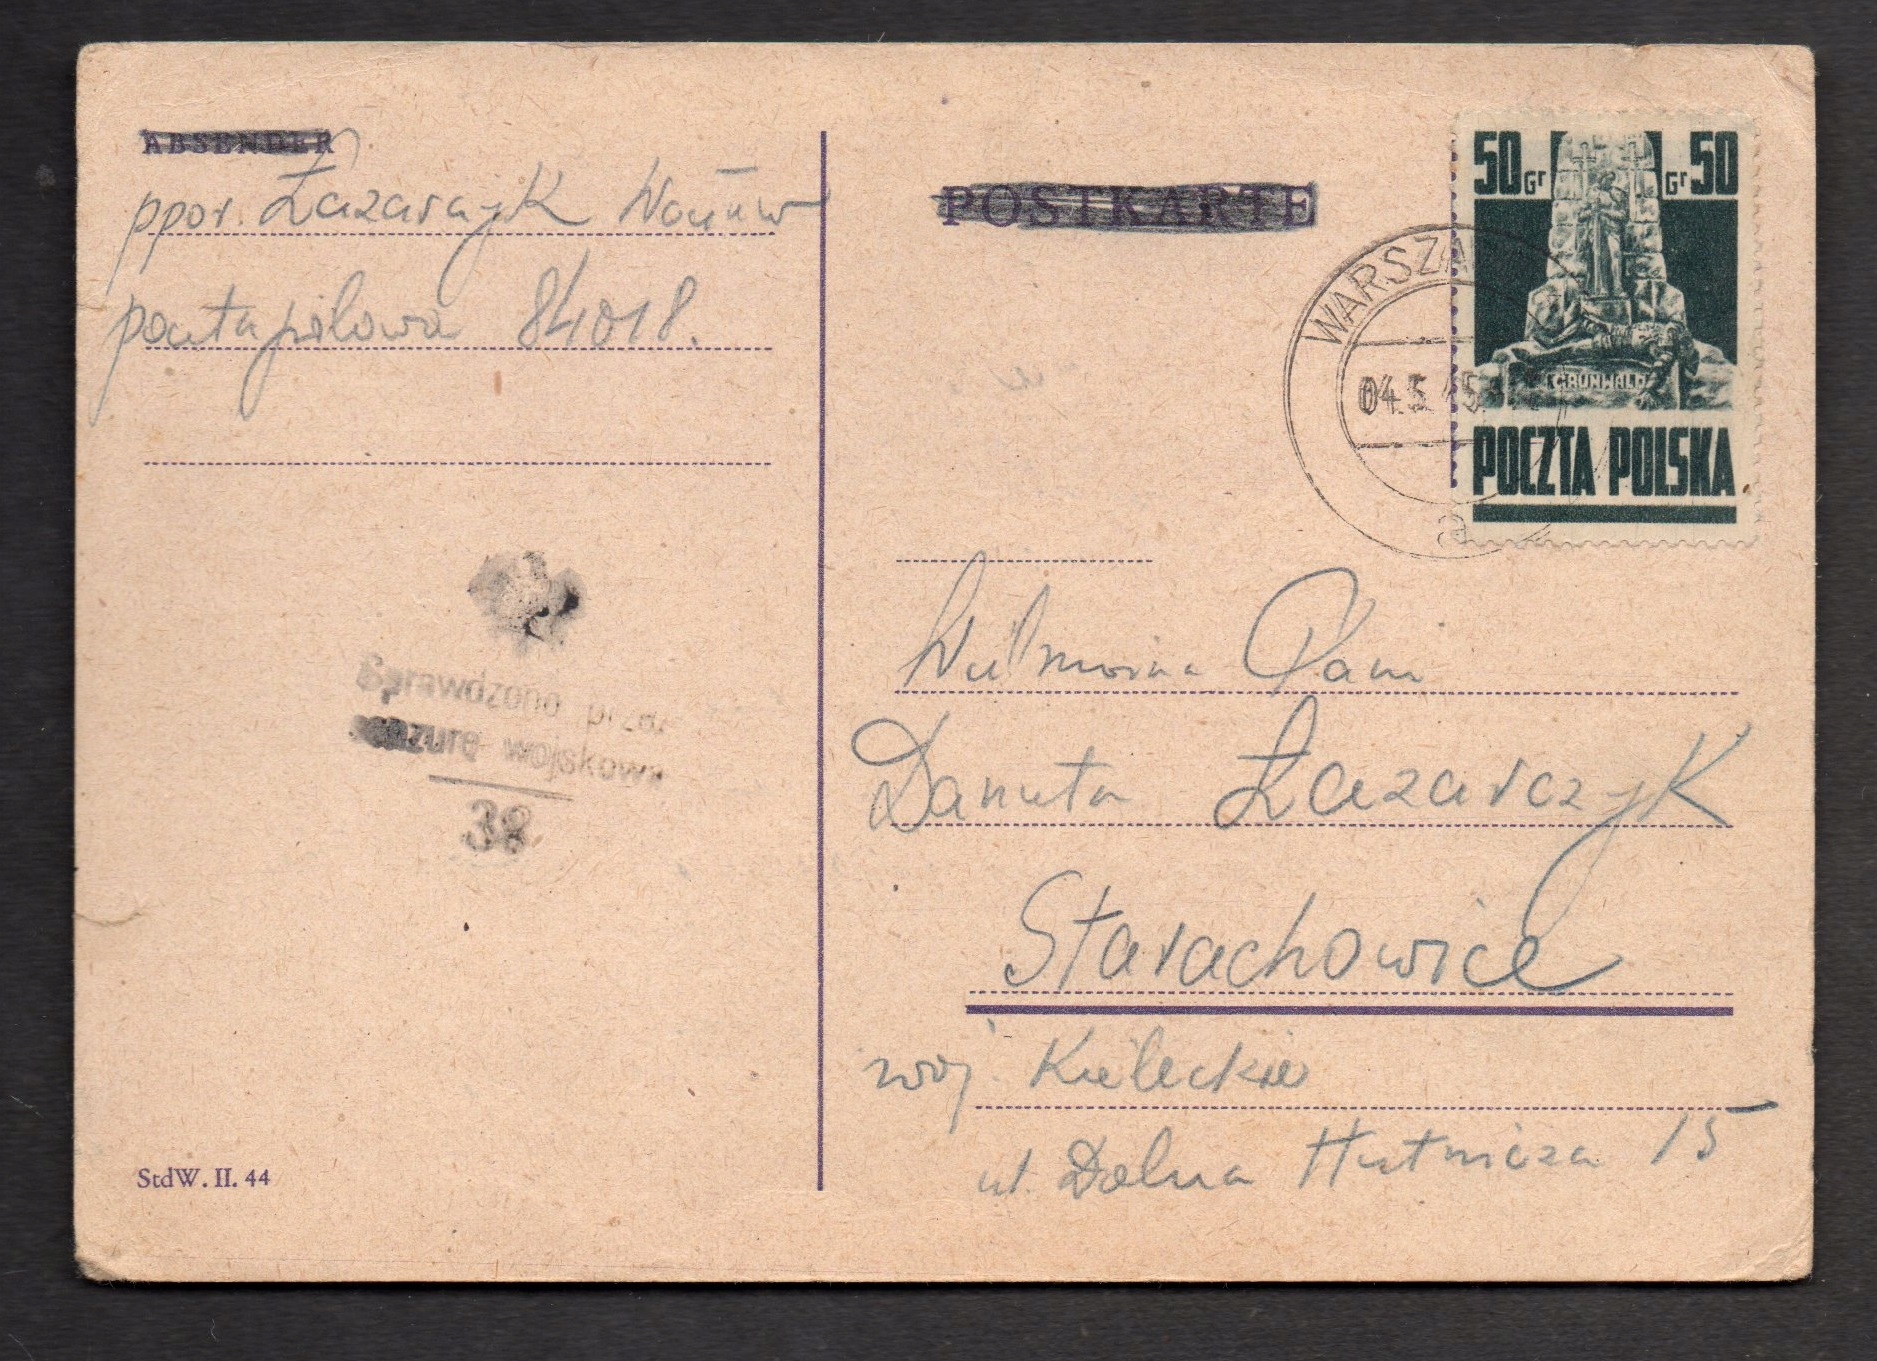 ABSENDER
ppor. Łazarczyk
poczta polowa 84018.
POSTKARTE
50 Gr Gr 50
GRUNWALD
POCZTA POLSKA
WARSZA
04.5.45
a
Sprawdzono przez
cenzurę wojskową
38
Wielmożna Pani
Danuta Łazarczyk
Starachowice
woj. Kieleckie
ul. Dolna Hutnicza 15
StdW. II. 44